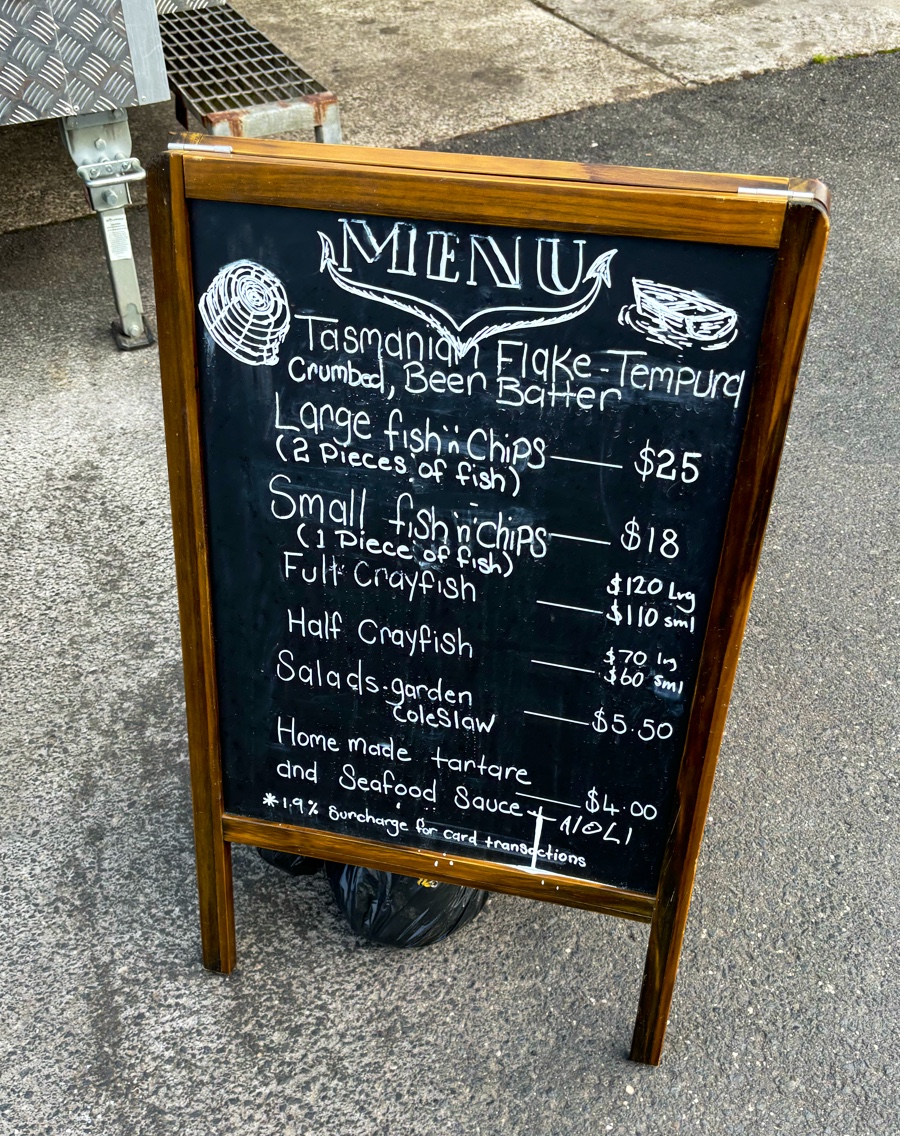 MENU
Tasmanian Flake - Tempura
Crumbed, Beer Batter
Large fish 'n' Chips — $25
(2 Pieces of fish)
Small fish 'n' chips — $18
(1 Piece of fish)
Full Crayfish — $120 Lrg
$110 sml
Half Crayfish — $70 lrg
$60 sml
Salads - garden
coleslaw — $5.50
Home made tartare
and Seafood Sauce — $4.00
+ AIOLI
*1.9% Surcharge for card transactions